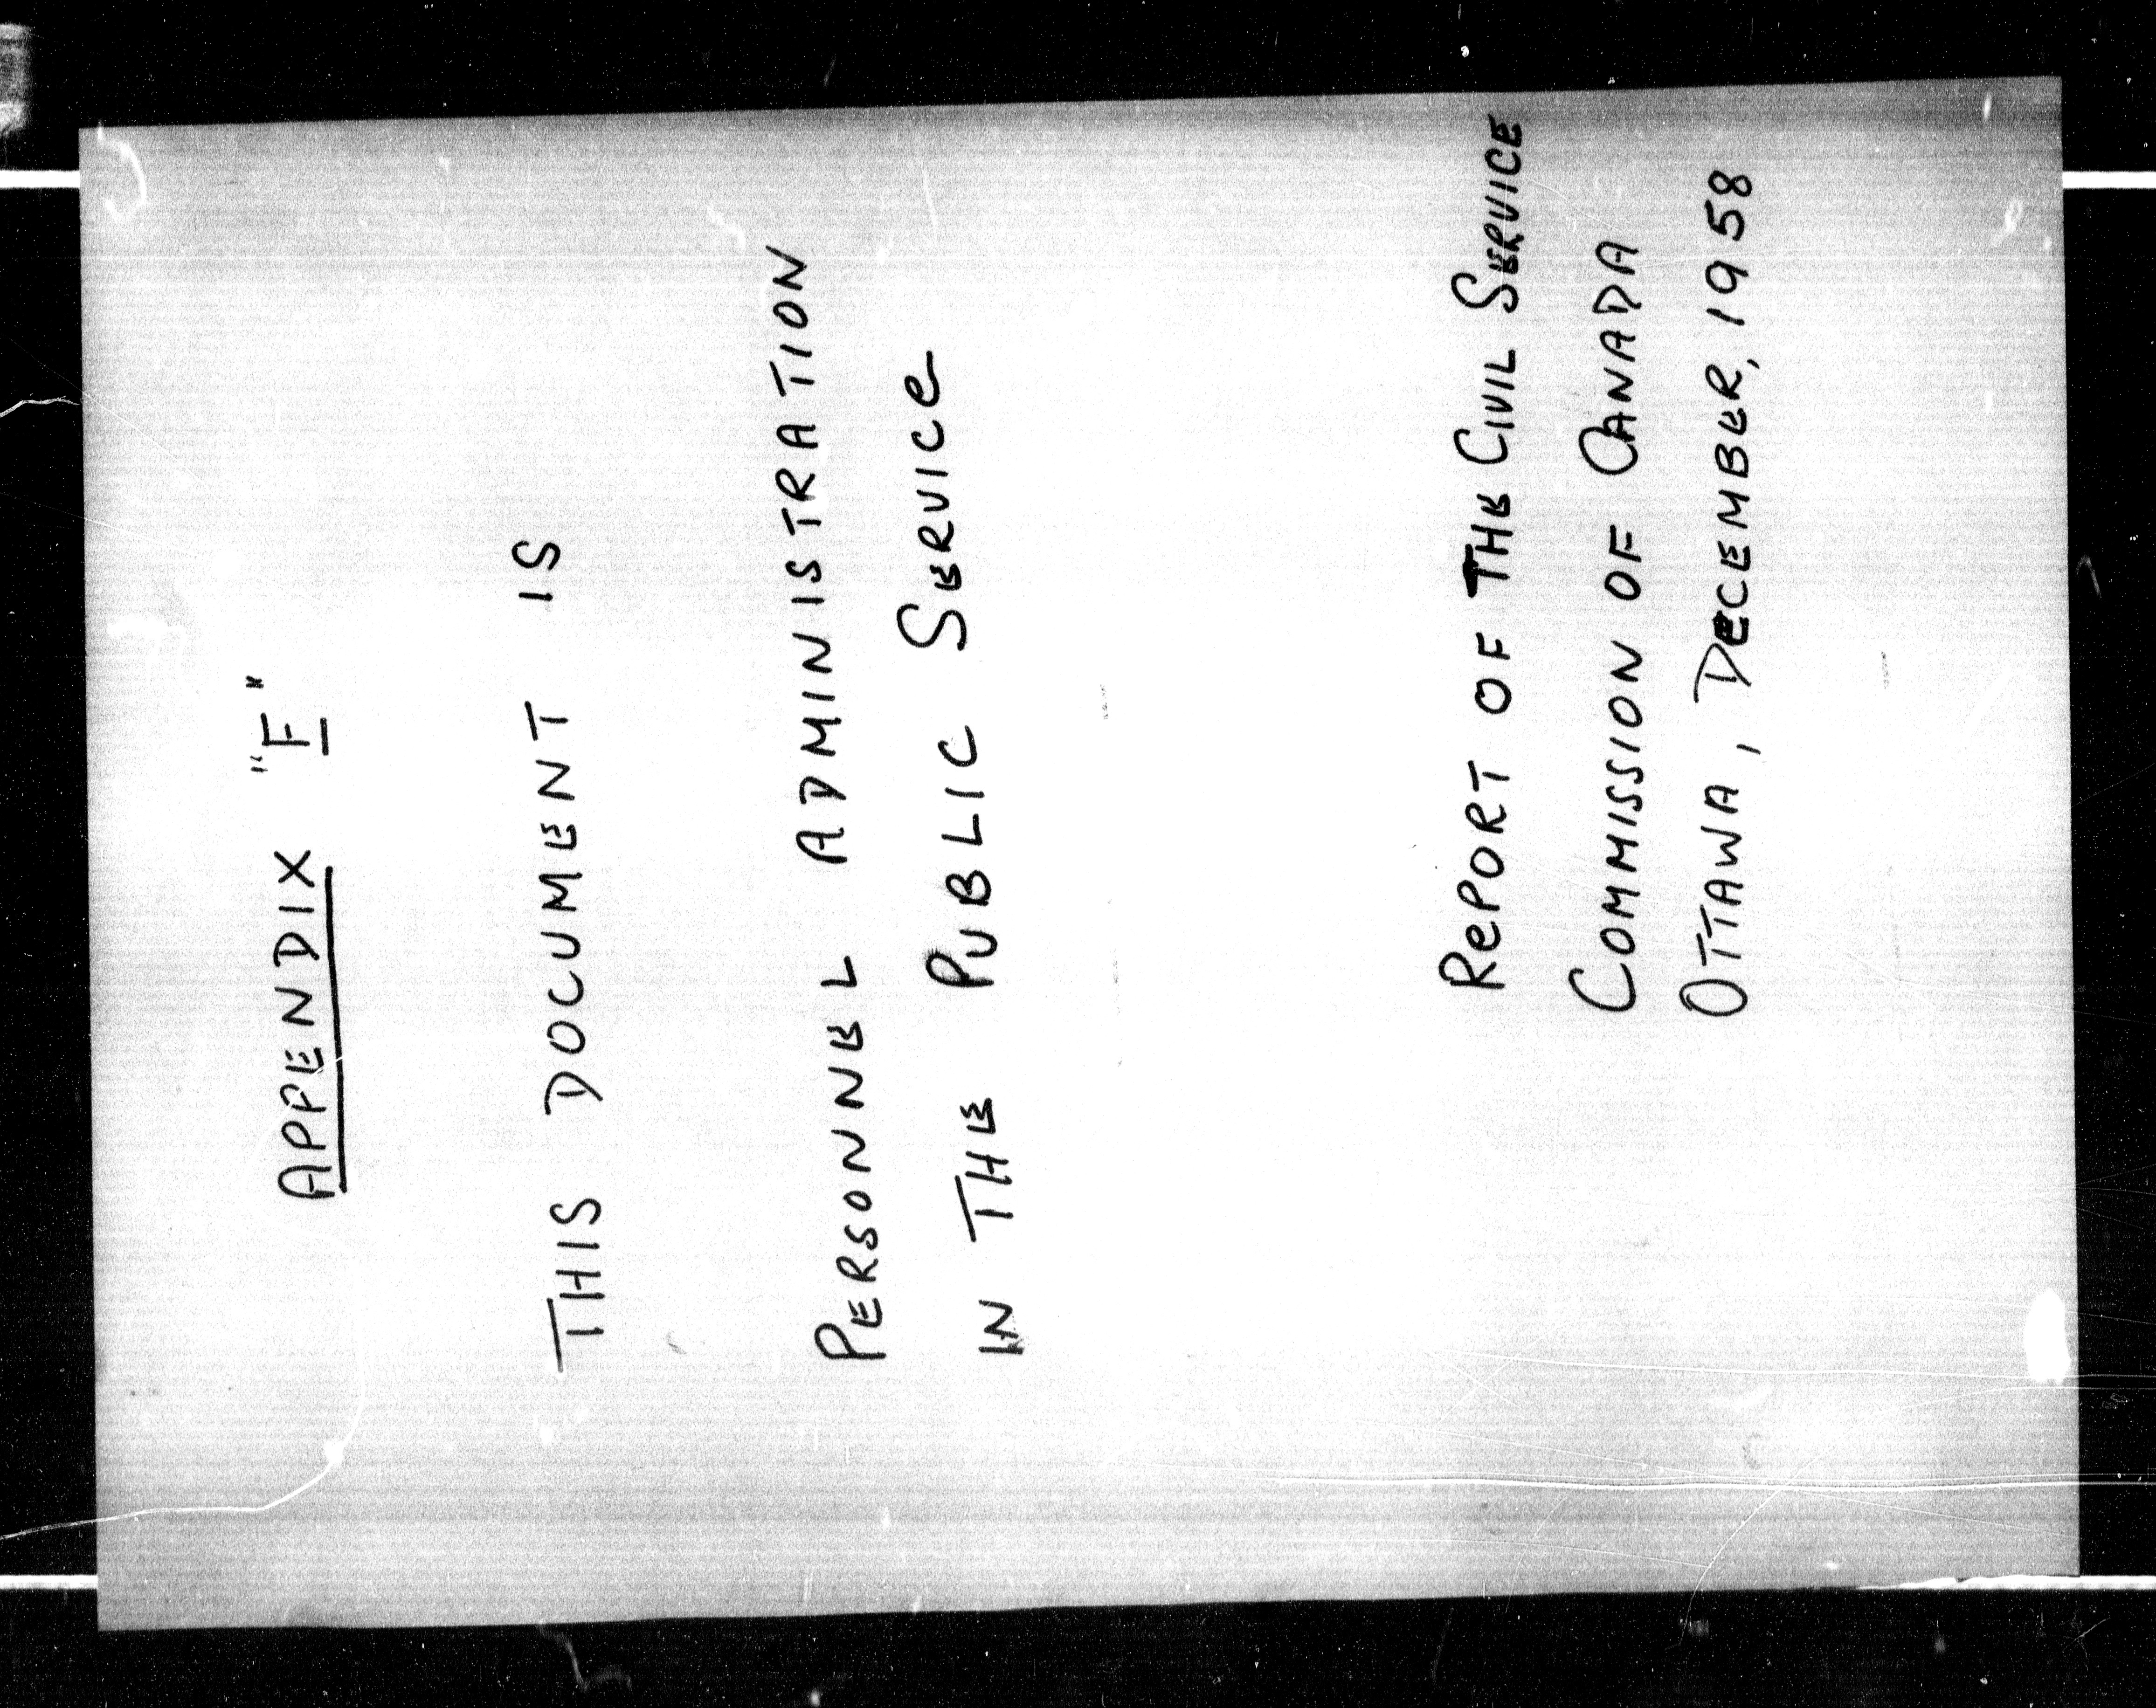 APPENDIX "F"
THIS DOCUMENT IS
PERSONNEL ADMINISTRATION
IN THE PUBLIC SERVICE
REPORT OF THE CIVIL SERVICE
COMMISSION OF CANADA
OTTAWA, DECEMBER, 1958